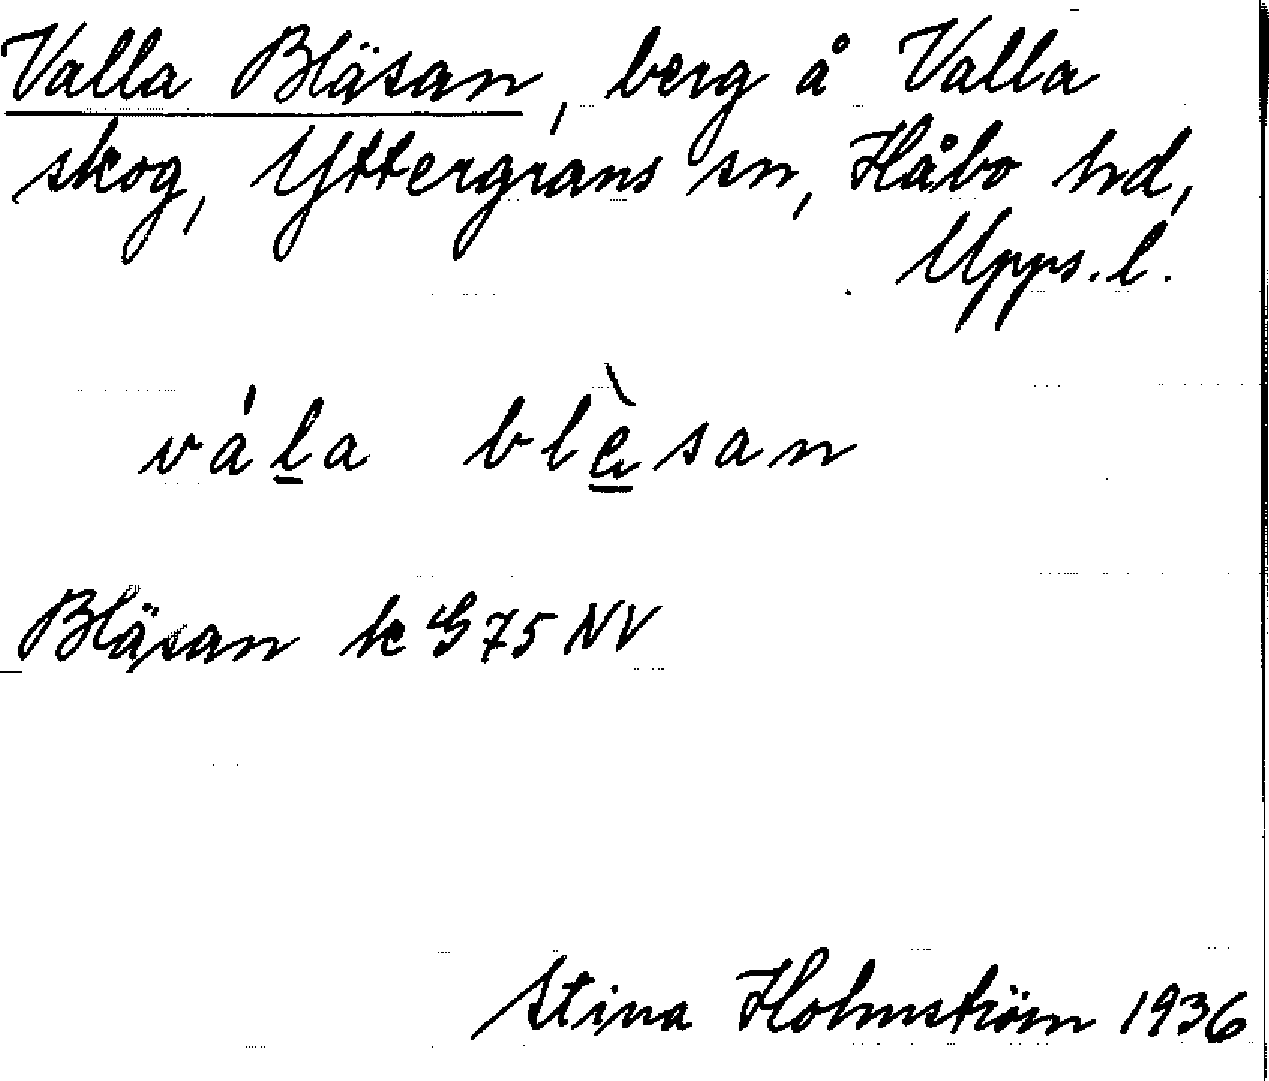 Valla Bläsan, berg å Valla
skog, Yttergrans sn, Håbo hd,
Upps. l.
vál̲a blè̲san
Bläsan k G75 NV
Stina Holmström 1936